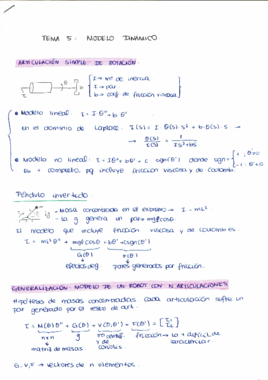 TEMA 5: MODELO DINÁMICO
ARTICULACIÓN SIMPLE DE ROTACIÓN
I → m° de inercia
τ → par
b → coef. de fricción viscosa
• Modelo lineal: τ = I·θ'' + b·θ'
en el dominio de Laplace: τ(s) = I · θ(s)·s² + b·θ(s)·s →
→ θ(s)/τ(s) = 1/(Is² + bs)
• Modelo no lineal: τ = Iθ'' + bθ' + c sgn(θ') donde sgn = { 1, θ'>0
-1, θ'<0
Es + completo, pq incluye fricción viscosa y de Coulomb.
Péndulo invertido
- Masa concentrada en el extremo → I = mL²
- La g genera un par = mgl cosθ
El modelo que incluye fricción viscosa y de Coulomb es
τ = mL²θ'' + mgl cosθ + bθ' + c sgn(θ')
G(θ) F(θ')
efectos de g pares generados por fricción.
GENERALIZACIÓN: MODELO DE UN ROBOT CON N ARTICULACIONES
Hipótesis de masas concentradas. Cada articulación sufre un
par generado por el resto de art.
τ = M(θ)θ'' + G(θ) + V(θ,θ') + F(θ') =
n×n g fricción → lo + difícil de
matriz de masas Coriolis caracterizar.
G, V, F → vectores de n elementos